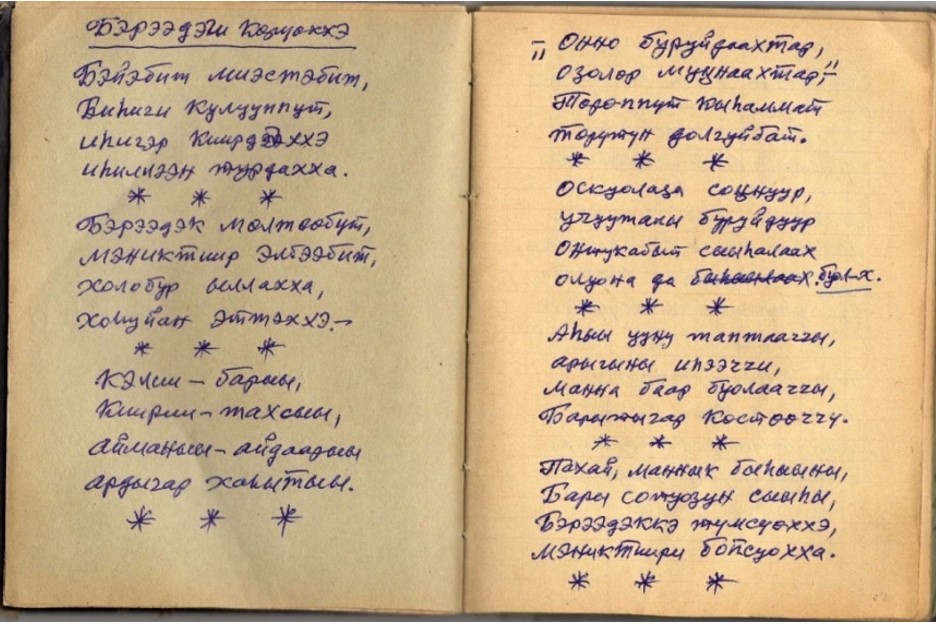 Бэрээдэги Көрүөххэ
Бэйэбит миэстэбит,
Биһиги Кулууппут,
иһигэр Киирдэххэ
иһиллээн турдахха.
* * *
Бэрээдэк мөлтөөбүт,
мэниктиир элбээбит,
холобур ыллахха,
хомуйан эттэххэ. –
* * *
кэлии – барыы,
Киирии – тахсыы,
айманыы – айдаарыы
ардыгар хаһытыы.
* * *
– „ Онно буруйдаахтар,
оҕолор муунаахтар, " –
Төрөппүт кыһаммат
төрүтүн долгуйбат.
* * *
Оскуолаҕа соҥнуур,
учууталы буруйдуур
Онтукабыт сыыһалаах
олуона да быһыылаах. буол-х.
* * *
Аһыы ууну таптааччы,
арыгыны иһээччи,
манна баар буолааччы,
Барытыгар Көстөөччү.
* * *
Пахай, маннык быһыыны,
Бары сотуоҕун сыыһы,
Бэрээдэккэ түмсүөххэ,
мэниктиири бопсуохха.
* * *